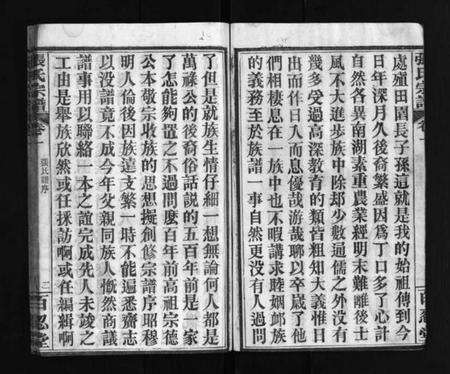 處殖田園長子孫這就是我的始祖傳到今
日年深月久後裔繁盛因為丁口多了心計
自然各異南湖素重農業經明末難離後士
風不大進步族中除却少數通儒之外沒有
幾多受過高深教育的類皆粗知大義惟日
出而作日入而息優哉游哉聊以卒歲了他
們相棲息在一族中也不暇講求睦婣䘏族
的義務至於族譜一事自然更沒有人過問
了但是就族生情仔細一想無論何人都是
萬祿公的後裔俗話說的五百年前是一家
了怎能夠置之不過問麽百年前高祖宗德
公本敬宗收族的思想擬創修宗譜序昭穆
明人倫後因族遠支繁一時不能遍悉齎志
以没譜竟不成今年父親同族人慨然商議
譜事用以聯絡一本之誼完成先人未竣之
工由是舉族欣然或任採訪啊或任編輯啊
張氏宗譜
卷一
張氏譜序
二
百忍堂